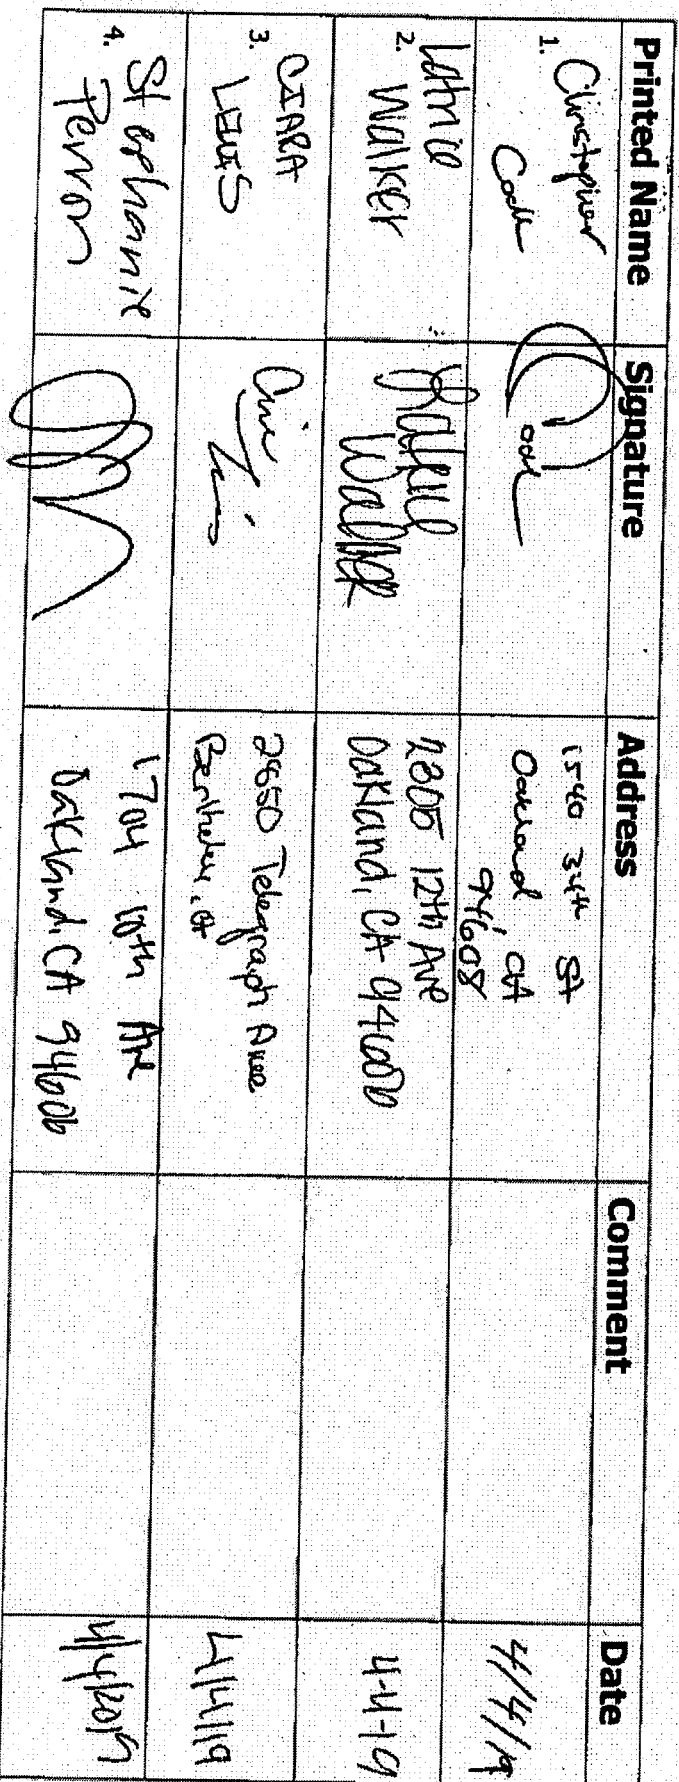 Printed Name Signature Address Comment Date
1. Christopher
Cook
1540 34th St
Oakland CA
94608
4/4/19
2. Latrice
Walker
Walker
2805 12th Ave
Oakland, CA 94606
4-4-19
3. CIARA
LEWIS
2850 Telegraph Ave
Berkeley, CA
4/4/19
4. Stephanie
Perron
1704 10th Ave
Oakland, CA 94606
4/4/2019